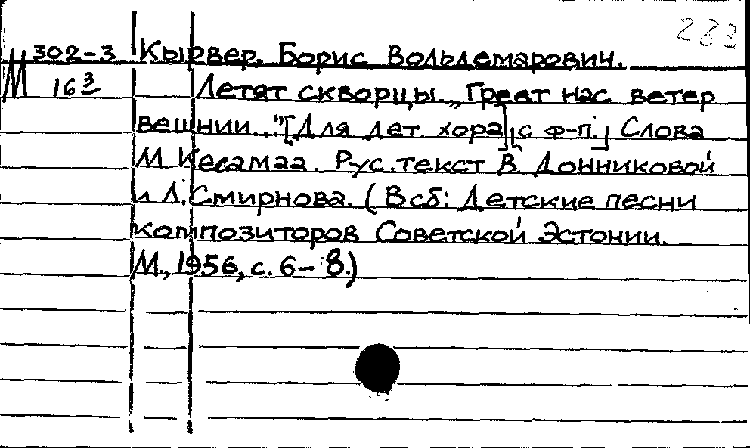 283
М 302-3 Кырвер, Борис Вольдемарович.
16³ Летят скворцы. „Греет нас ветер
вешний..." [Для дет. хора] [с ф-п.] Слова
М. Кесамаа. Рус. текст В. Донниковой
и Л. Смирнова. (В сб: Детские песни
композиторов Советской Эстонии.
М., 1956, с. 6-8.)